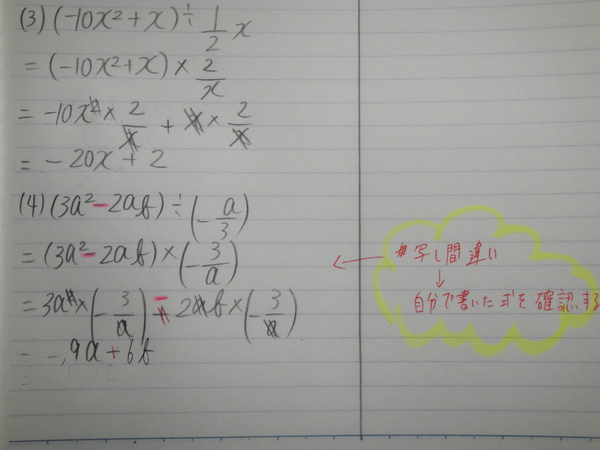 (3) (-10x²+x)÷1/2 x
= (-10x²+x)×2/x
= -10x²×2/x + x×2/x
= -20x+2
(4) (3a²-2ab)÷(-a/3)
= (3a²-2ab)×(-3/a)
= 3a²×(-3/a) - 2ab×(-3/a)
= -9a+6b
写し間違い
↓
自分で書いた式を確認する